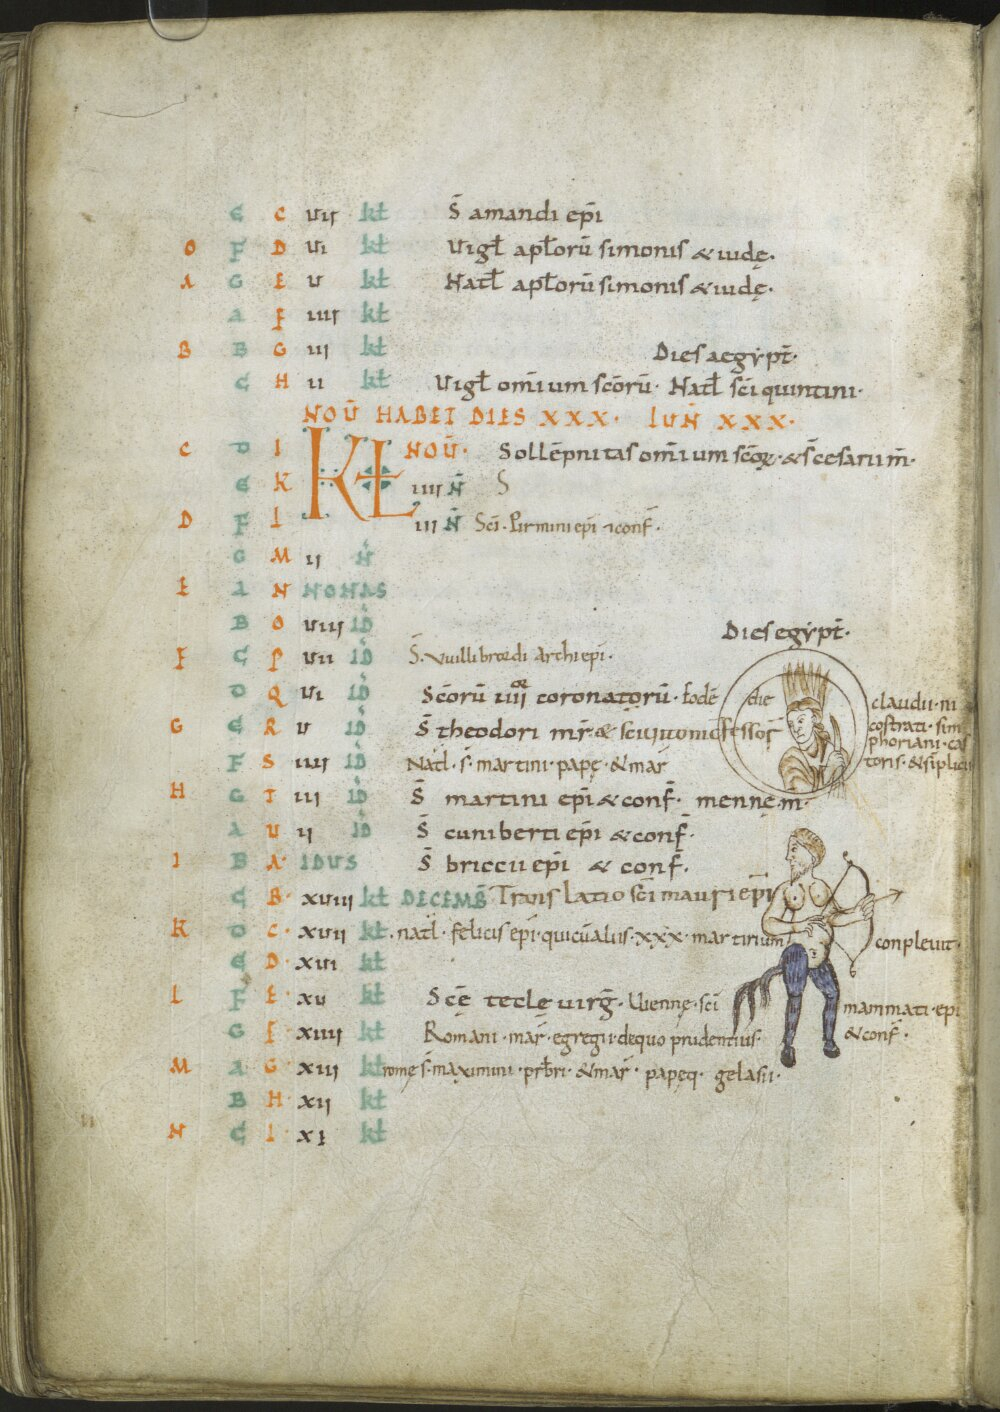 E C VII kł S̄ amandi epi̅
O F D VI kł Vigł apłorū simonis & iudę.
A G E V kł Natł apłorū simonis & iudę.
A F IIII kł
B B G III kł Dies aegypt̄.
C H II kł Vigł om̄ium scōrū. Natł sc̄i quintini.
NOV̄ HABET DIES XXX. LUN̄ XXX.
C D I KL NOV̄. Sollēpnitas om̄ium scōꝝ. & s̄ cesarii m̄.
E K IIII N̄ S
D F L III N̄ Sc̄i. Pirmini epi̅ & conf̄.
G M II N̄
E A N NONAS
B O VIII ID Dies egypt̄.
F C P VII ID S̄. Vuillibrordi Archiepi̅.
D Q VI ID Scōrū IIIIor coronatorū. Eodē die claudii. ni
costrati. sim
phoriani. cas
toris. & siplicii
G E R V ID S̄ theodori mr̄ & sc̄i iustoni cōfessoꝝ
F S IIII ID Natl. s̄. martini. papę. & mar̄
H G T III ID S̄ martini epi̅ & conf̄. mennę m̄.
A U II ID S̄ cuniberti epi̅ & conf̄.
I B A. IDUS S̄ briccii epi̅ & conf̄.
C B. XVIII kł DECEMB̄ Translatio sc̄i mauri epi̅
K D C. XVII kł. natl̄. felicis epi̅. qui cū aliis. xxx. martirium conplevit.
E D. XVI kł
L F E. XV kł Scę̄ teclę uirḡ. Viennę. sc̄i mammati. epi
G F. XIIII kł Romani. mar̄. egregii. de quo prudentius. & conf̄.
M A G. XIII kł romę s̄. maximini. prb̄ri. & mar̄. papęq. gelasii.
B H. XII kł
N C I. XI kł